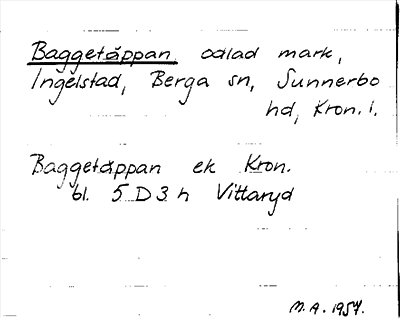 Baggetäppan, odlad mark,
Ingelstad, Berga sn, Sunnerbo
hd, Kron. l.
Baggetäppan ek Kron.
bl. 5 D 3 h Vittaryd
M.A. 1957.